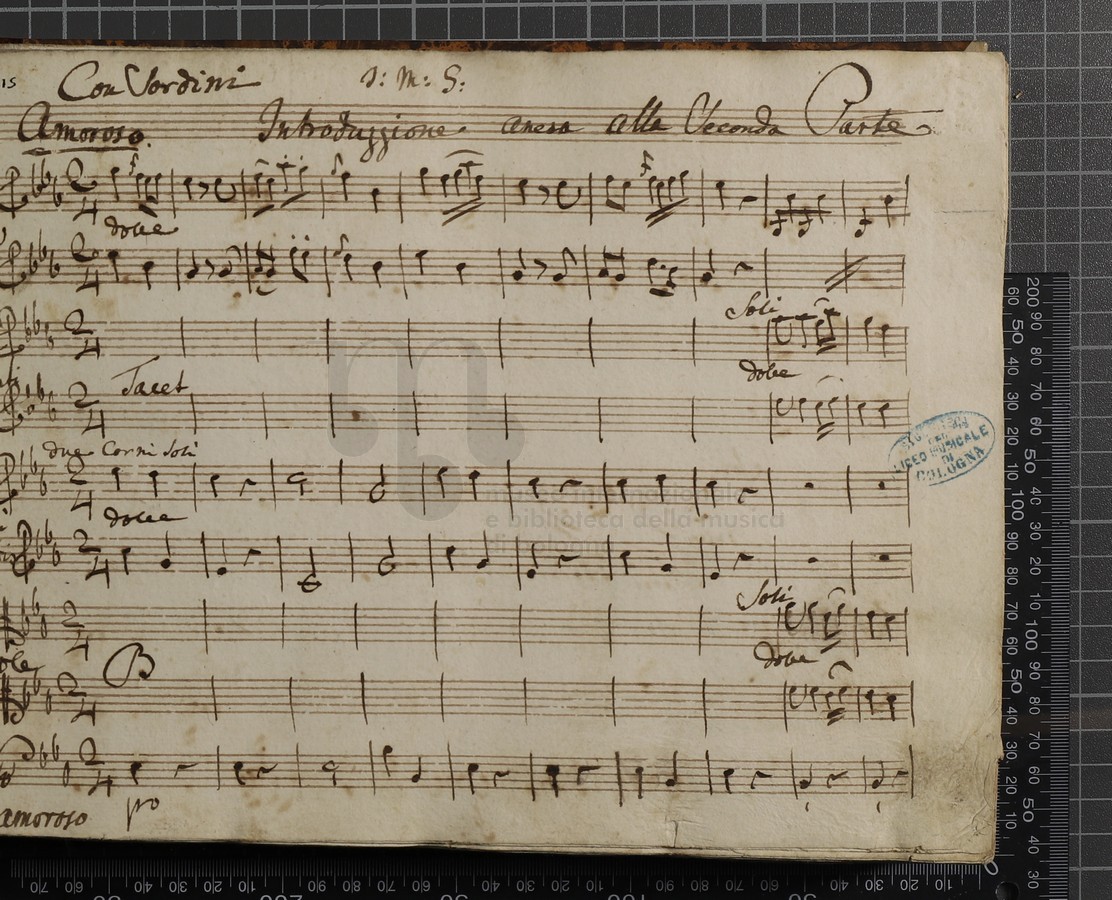 15
Con Sordini J: M: G:
Amoroso. Introduzzione anesa alla Seconda Parte
dolce
Soli
dolce
Tacet
due Corni Soli
dolce
museo internazionale
e biblioteca della musica
di bologna
LICEO MUSICALE
DI
BOLOGNA
Soli
dolce
ole
B
amoroso pro